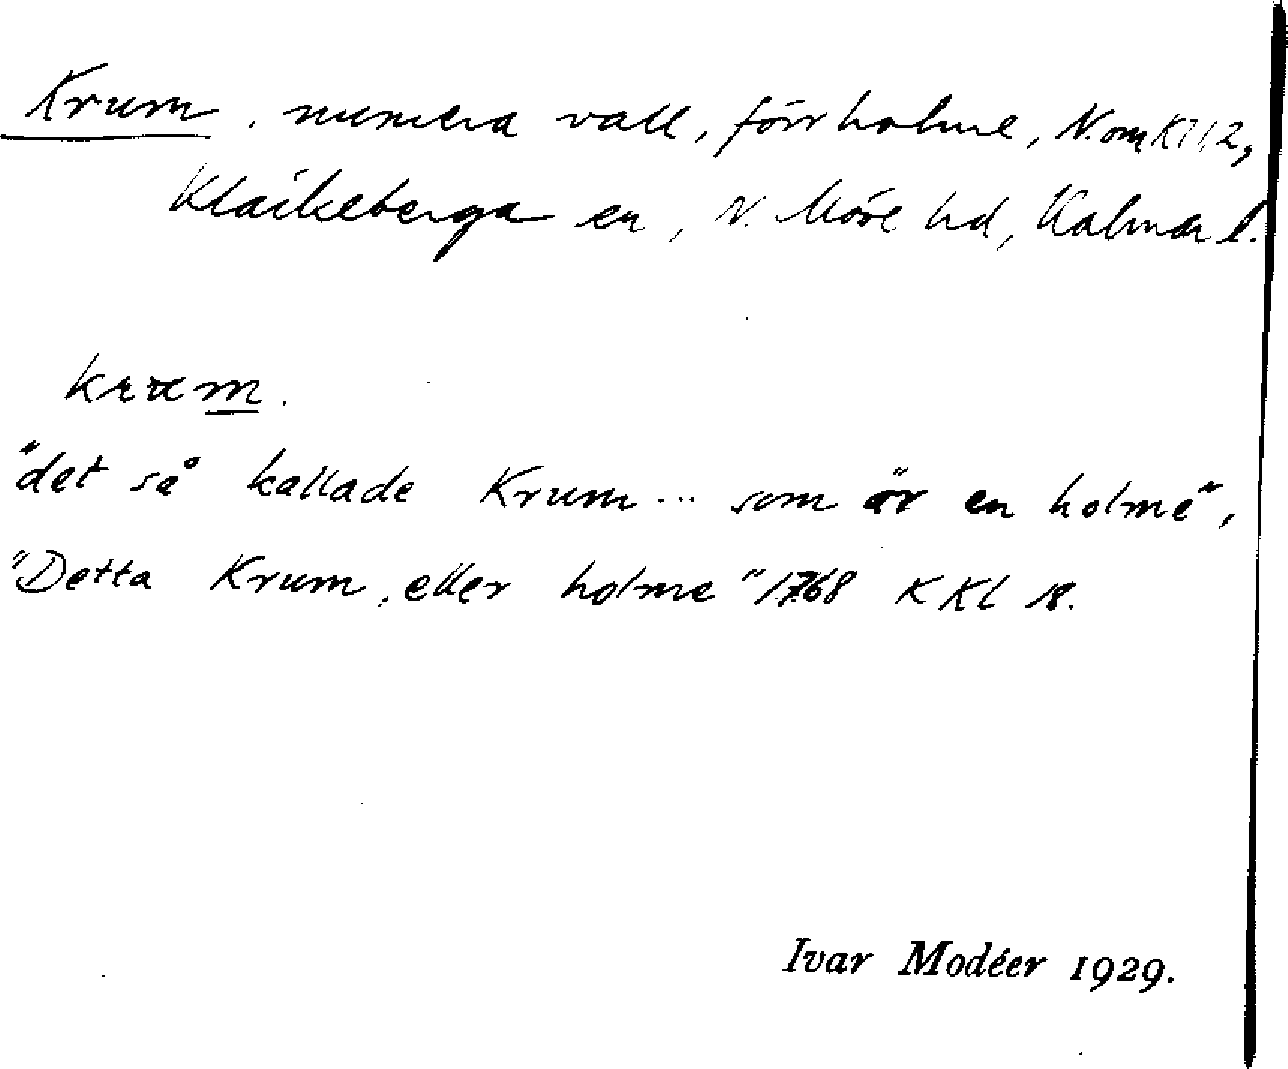 Krum, numera vall, förr holme, N. om Kl 12,
Kläckeberga sn, N. Möre hd, Kalmar l.
krum.
"det så kallade Krum ... som är en holme",
"Detta Krum, eller holme" 1768 K Kl 18.
Ivar Modéer 1929.